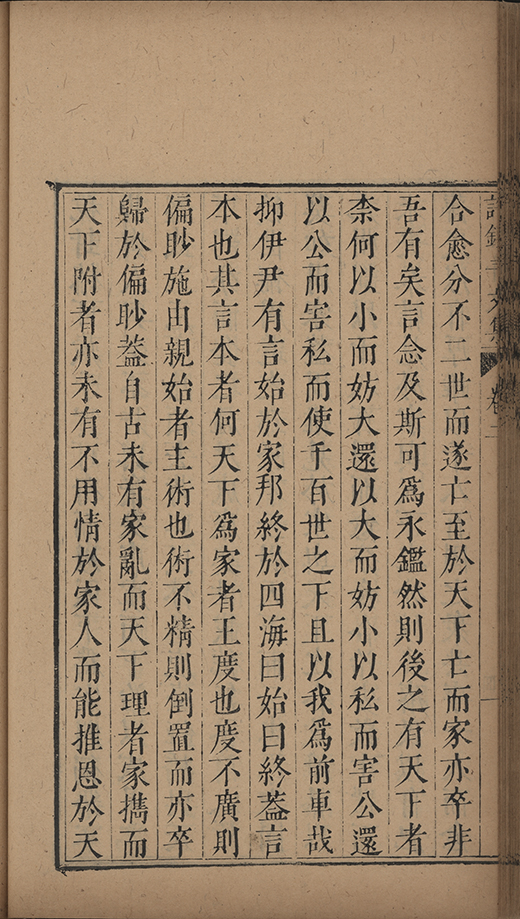 合愈分不二世而遂亡至於天下亡而家亦卒非
吾有矣言念及斯可爲永鑑然則後之有天下者
柰何以小而妨大還以大而妨小以私而害公還
以公而害私而使千百世之下且以我爲前車哉
抑伊尹有言始於家邦終於四海曰始曰終葢言
本也其言本者何天下爲家者王度也度不廣則
偏眇施由親始者主術也術不精則倒置而亦卒
歸於偏眇葢自古未有家亂而天下理者家攜而
天下附者亦未有不用情於家人而能推恩於天